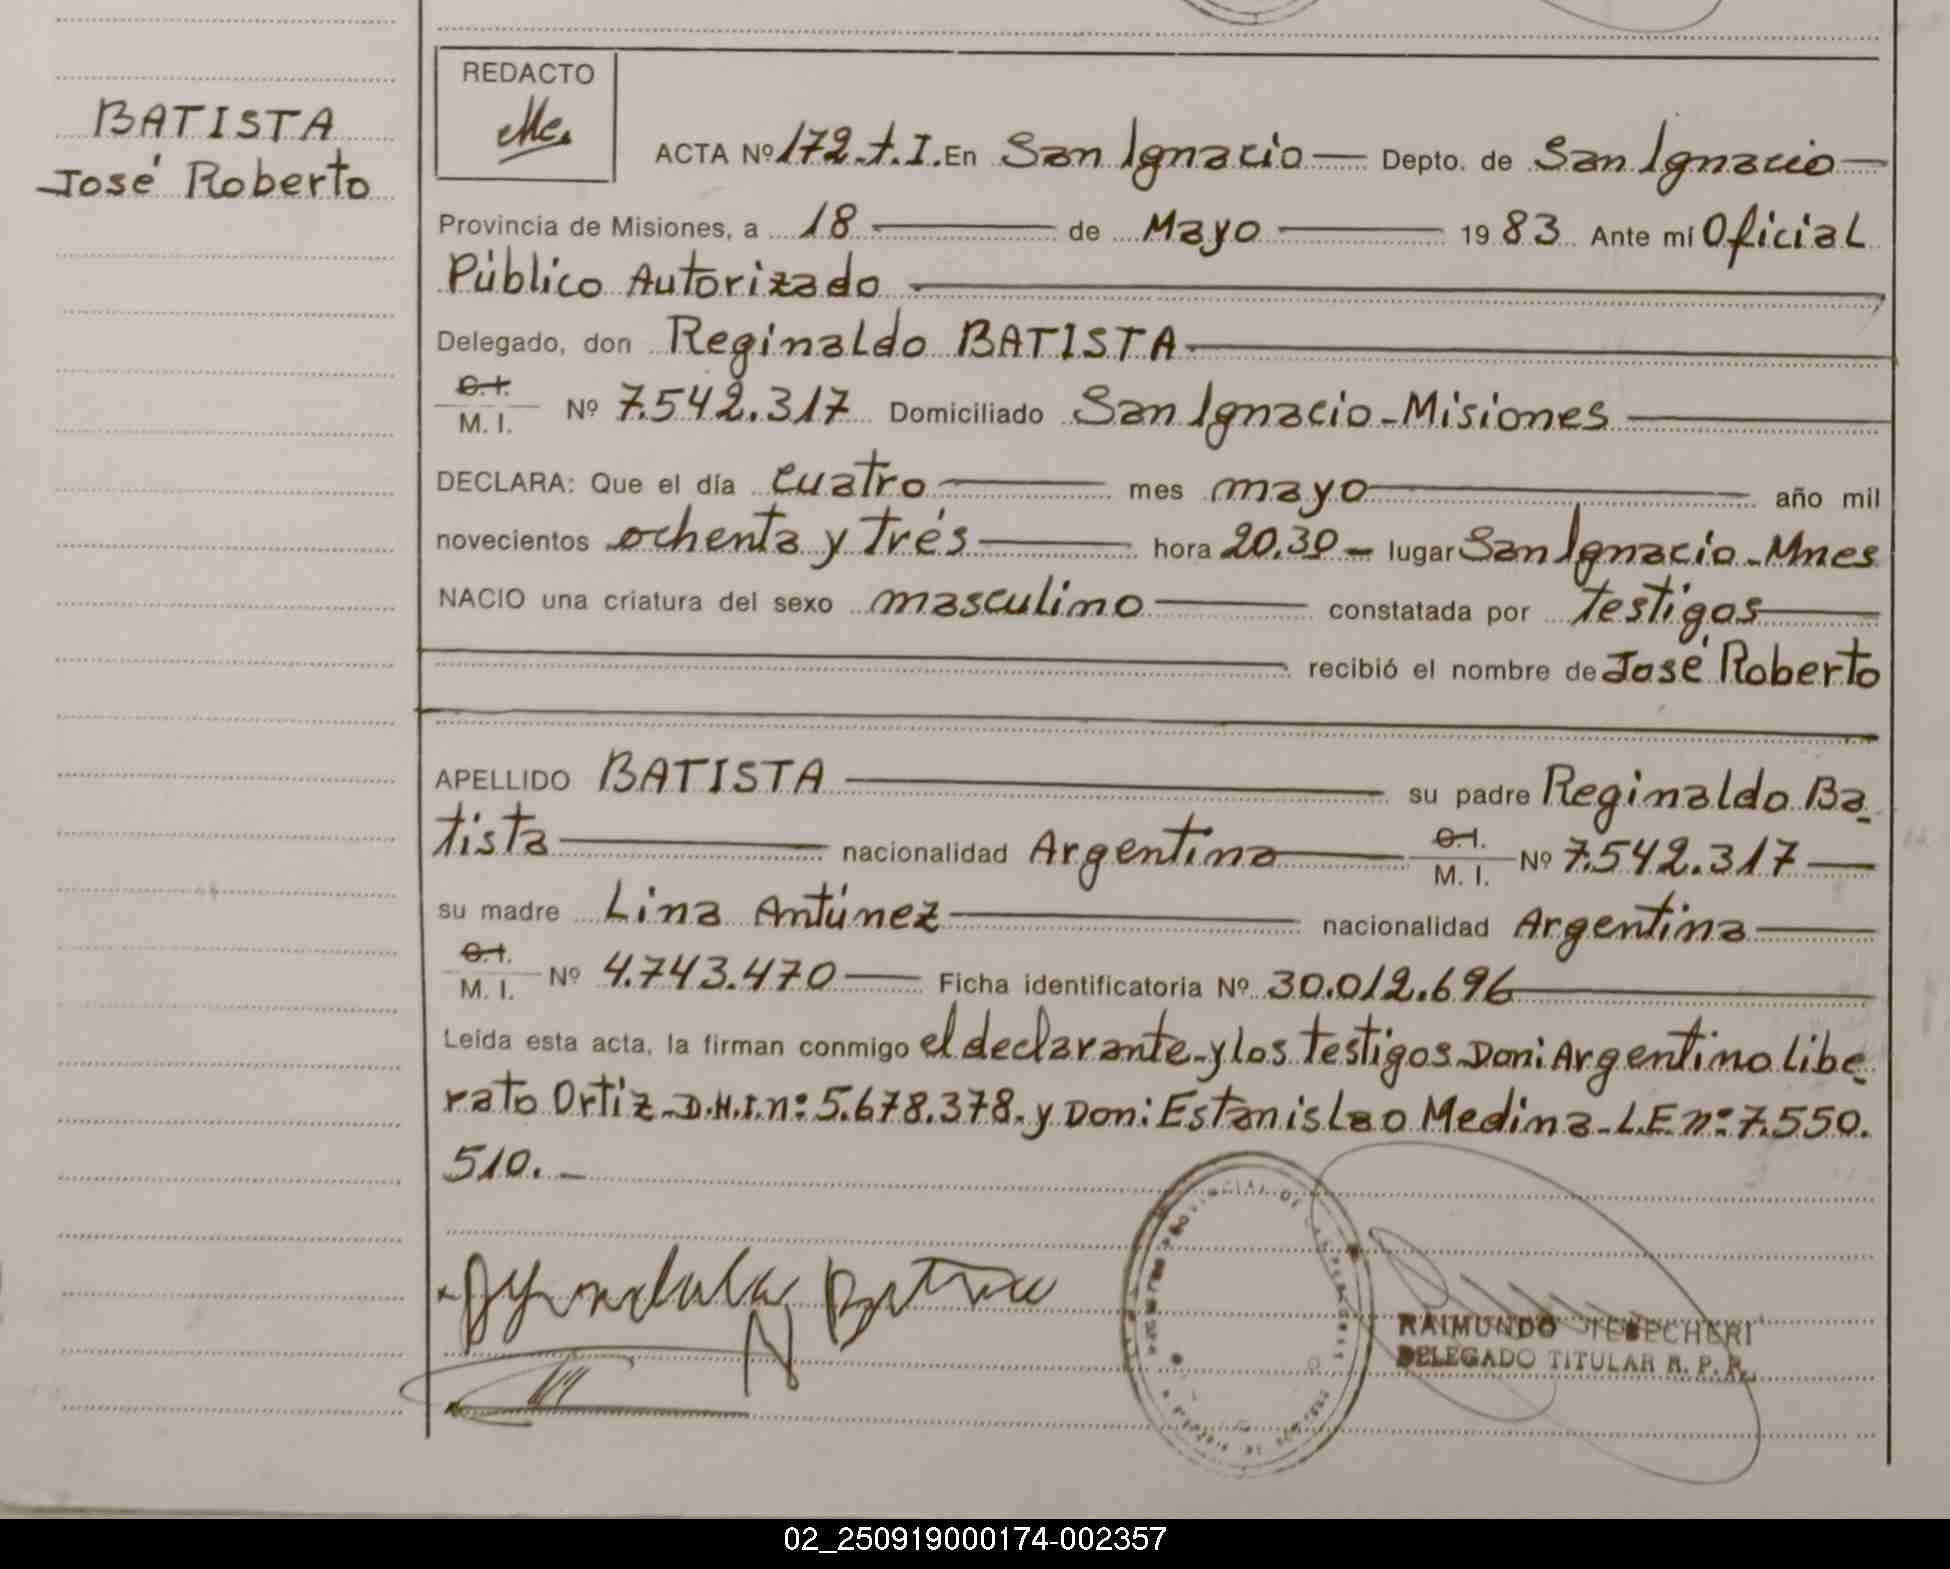 BATISTA
José Roberto
REDACTO
ACTA Nº 172.t.I. En San Ignacio Depto. de San Ignacio
Provincia de Misiones, a 18 de Mayo 1983 Ante mí Oficial
Público Autorizado
Delegado, don Reginaldo BATISTA
C.I.
M. I. Nº 7.542.317 Domiciliado San Ignacio-Misiones
DECLARA: Que el día cuatro mes mayo año mil
novecientos ochenta y trés hora 20.30 lugar San Ignacio-Mnes
NACIO una criatura del sexo masculino constatada por testigos
recibió el nombre de José Roberto
APELLIDO BATISTA su padre Reginaldo Ba-
tista nacionalidad Argentina C.I. M. I. Nº 7.542.317
su madre Lina Antúnez nacionalidad Argentina
C.I.
M. I. Nº 4.743.470 Ficha identificatoria Nº 30.012.696
Leída esta acta, la firman conmigo el declarante-y los testigos Don: Argentino Libe-
rato Ortiz-D.N.I.nº 5.678.378.y Don: Estanislao Medina-L.E nº 7.550.
510.-
RAIMUNDO TEBECHERI
DELEGADO TITULAR R. P. P.
02_250919000174-002357